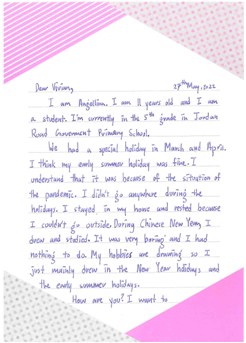 Dear Vivian, 27th May, 2022
I am Angellina. I am 11 years old and I am
a student. I'm currently in the 5th grade in Jordan
Road Government Primary School.
We had a special holiday in March and April.
I think my early summer holiday was fine. I
understand that it was because of the situation of
the pandemic. I didn't go anywhere during the
holidays. I stayed in my house and rested because
I couldn't go outside. During Chinese New Year, I
drew and studied. It was very boring and I had
nothing to do. My hobbies are drawing so I
just mainly drew in the New Year holidays and
the early summer holidays.
How are you? I want to